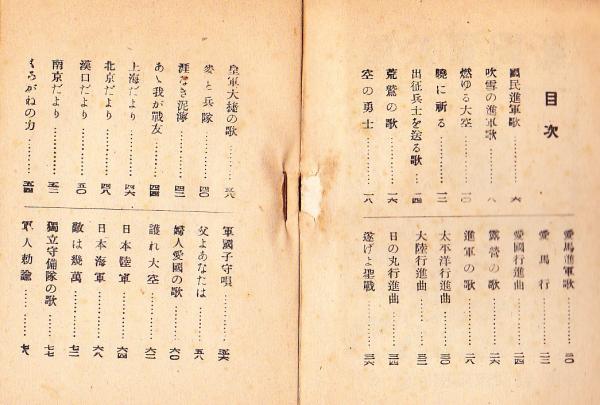 目次
國民進軍歌………六
吹雪の進軍歌………八
燃ゆる大空………一〇
曉に祈る………一二
出征兵士を送る歌…一四
荒鷲の歌………一六
空の勇士………一八
愛馬進軍歌………二〇
愛馬行………二二
愛國行進曲………二四
露營の歌………二六
進軍の歌………二八
太平洋行進曲………三〇
大陸行進曲………三二
日の丸行進曲………三四
遂げよ聖戰………三六
皇軍大捷の歌………三八
麥と兵隊………四〇
涯なき泥濘………四二
あゝ我が戰友………四四
上海だより………四六
北京だより………四八
漢口だより………五〇
南京だより………五二
くろがねの力………五四
軍國子守唄………五六
父よあなたは………五八
婦人愛國の歌………六〇
護れ大空………六二
日本陸軍………六四
日本海軍………六八
敵は幾萬………七二
獨立守備隊の歌………七七
軍人勅諭………七八